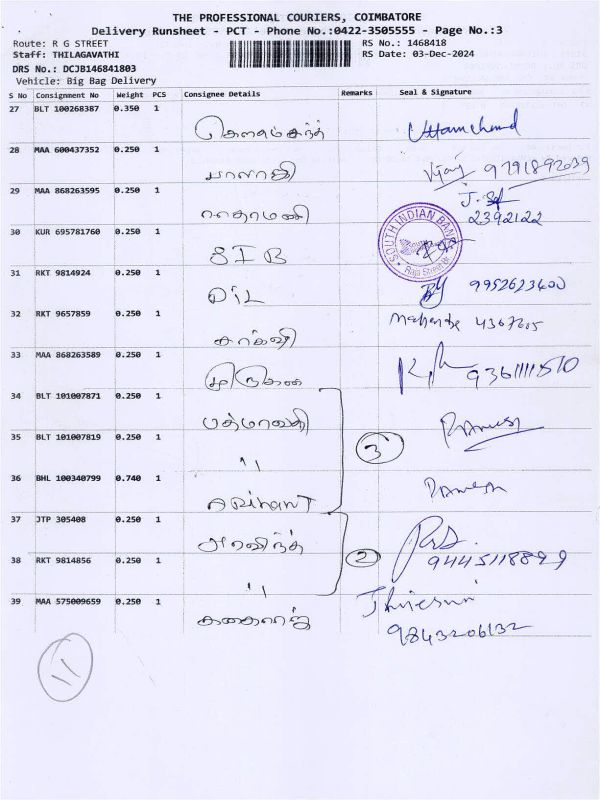 THE PROFESSIONAL COURIERS, COIMBATORE
Delivery Runsheet - PCT - Phone No.:0422-3505555 - Page No.:3
Route: R G STREET RS No.: 1468418
Staff: THILAGAVATHI RS Date: 03-Dec-2024
DRS No.: DCJB146841803
Vehicle: Big Bag Delivery
S No Consignment No Weight PCS Consignee Details Remarks Seal & Signature
27 BLT 100268387 0.350 1
Uttamchand
28 MAA 600437352 0.250 1
பாலாஜி Vijay 9791892039
29 MAA 868263595 0.250 1
J. 
2392122
30 KUR 695781760 0.250 1
SOUTH INDIAN BANK
SIB
Raja Street Br.
31 RKT 9814924 0.250 1
9952623400
32 RKT 9657859 0.250 1
33 MAA 868263589 0.250 1
9361111510
34 BLT 101007871 0.250 1
பத்மாவதி
35 BLT 101007819 0.250 1
" 3 Ramesh
36 BHL 100340799 0.740 1
Ramesh
37 JTP 305408 0.250 1
அரவிந்த்
38 RKT 9814856 0.250 1 2 9445118899
"
39 MAA 575009659 0.250 1
9843206132
11